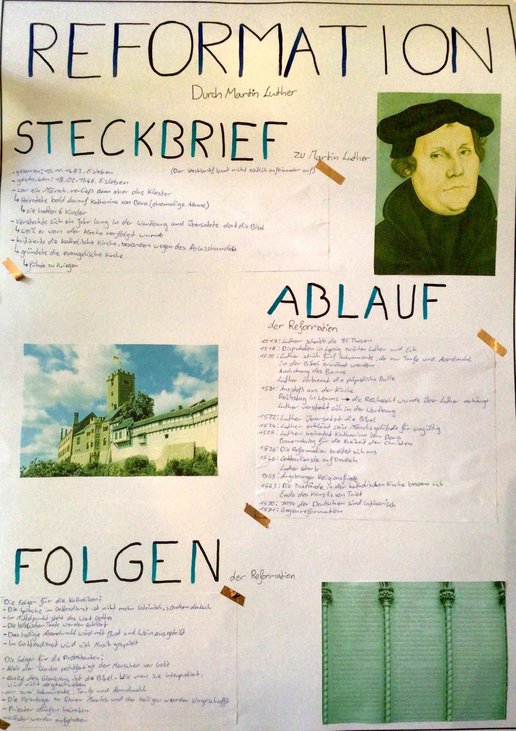 REFORMATION
Durch Martin Luther
STECKBRIEF zu Martin Luther
- geboren: 10.11.1483, Eisleben (Der Steckbrief baut nicht zeitlich aufeinander auf)
- gestorben: 18.02.1546, Eisleben
- war ein Mönch, verließ dann aber das Kloster
↳ Heiratete bald darauf Katharina von Bora (ehemalige Nonne)
↳ sie hatten 6 Kinder
- Versteckte sich ein Jahr lang in der Wartburg und übersetzte dort die Bibel
↳ weil er von der Kirche verfolgt wurde
- kritisierte die katholische Kirche, besonders wegen des Ablasshandels
↳ gründete die evangelische Kirche
↳ führte zu Kriegen
ABLAUF
der Reformation
1517: Luther schrieb die 95 Thesen
1518: Disputation in Leipzig zwischen Luther und Eck
1520: Luther strich fünf Sakramente, da nur Taufe und Abendmahl
in der Bibel erwähnt werden
Androhung des Banns
Luther verbrennt die päpstliche Bulle
1521: Ausstoß aus der Kirche
Reichstag in Worms → die Reichsacht wurde über Luther verhängt
Luther versteckt sich in der Wartburg
1522: Luther übersetzt die Bibel
1524: Luther erklärt sein Mönchsgelübde für ungültig
1525: Luther heiratet Katharina von Bora
Bauernkrieg für die Freiheit der Christen
1526: Die Reformation breitet sich aus
Gottesdienste auf Deutsch
Luther starb
1555: Augsburger Religionsfriede
1563: Die Zustände in der katholischen Kirche bessern sich
Ende des Konzils von Trient
1570: 70% der Deutschen sind lutherisch
Gegenreformation
FOLGEN der Reformation
Die Folgen für die Katholiken:
- Die Sprache im Gottesdienst ist nicht mehr lateinisch, sondern deutsch
- Im Mittelpunkt steht das Wort Gottes
- Die biblischen Texte werden erklärt
- Das heilige Abendmahl wird mit Brot und Wein ausgeteilt
- Im Gottesdienst wird viel Musik gespielt
Die Folgen für die Protestanten:
- Allein der Glaube rechtfertigt den Menschen vor Gott
- Quelle des Glaubens ist die Bibel - Wie man sie interpretiert,
wird nicht vorgeschrieben
- nur zwei Sakramente: Taufe und Abendmahl
- Die Feiertage zu Ehren Marias und der Heiligen werden abgeschafft
- Priester dürfen heiraten
- Klöster werden aufgehoben